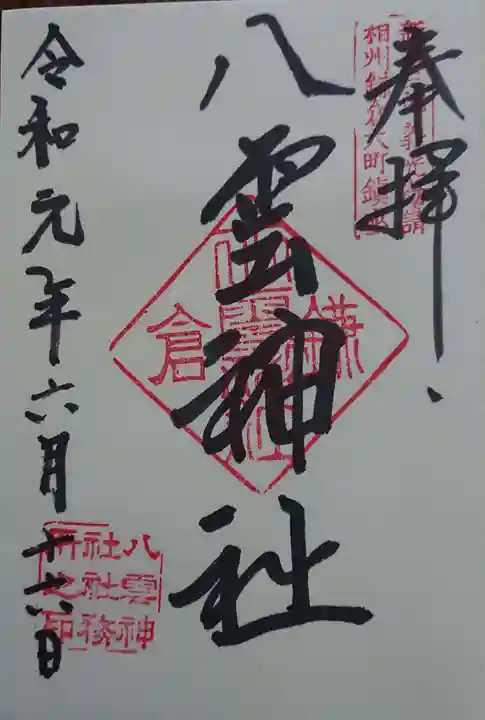 奉拝
相州鎌倉大町鎮座
八雲神社
鎌倉
八雲神
社社務
所之印
令和元年六月十六日